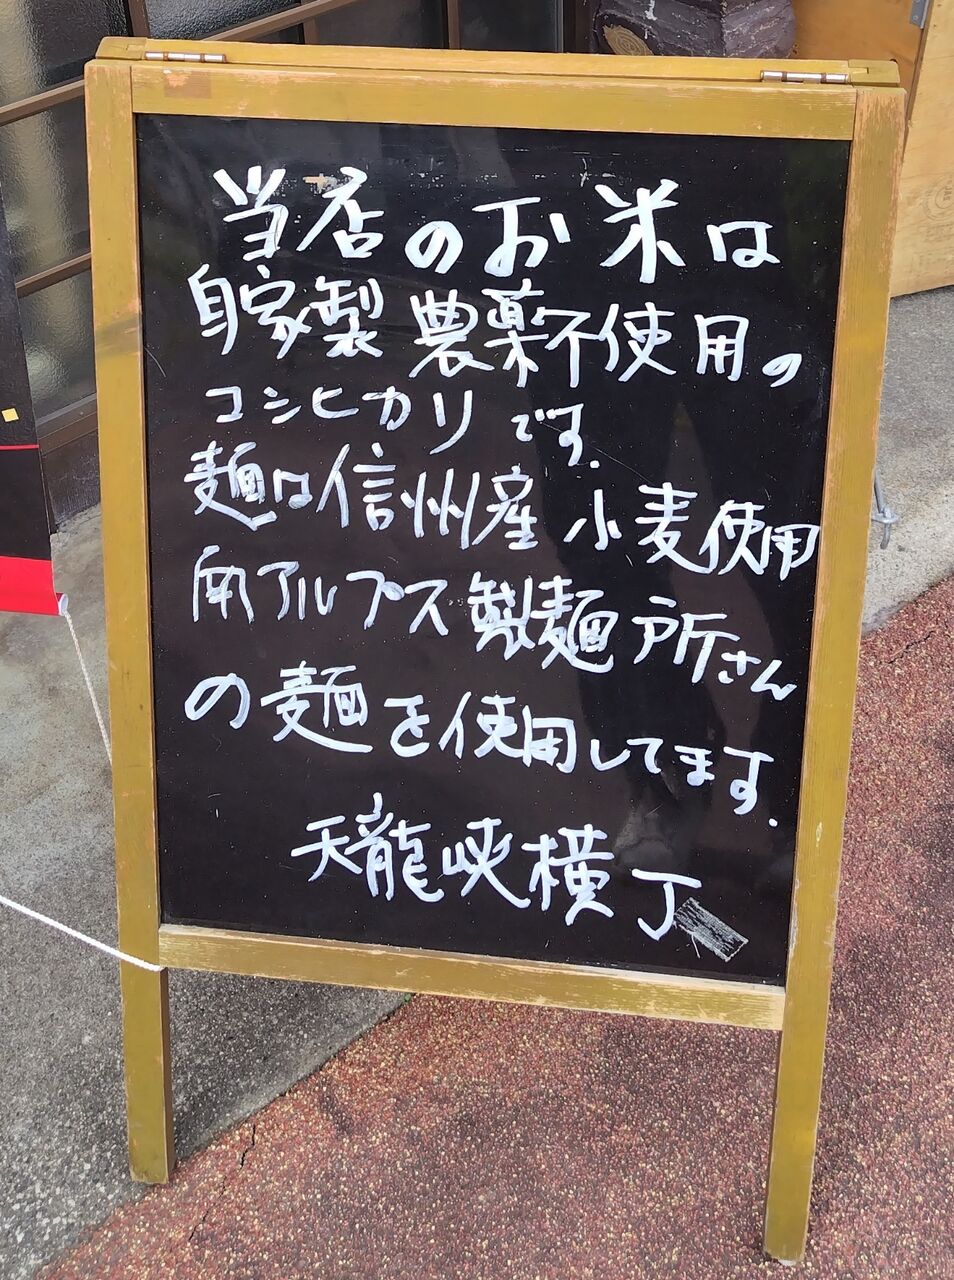 当店のお米は
自家製 農薬不使用の
コシヒカリです.
麺は信州産 小麦使用
南アルプス製麺所さん
の麺を使用してます.
天龍峡横丁